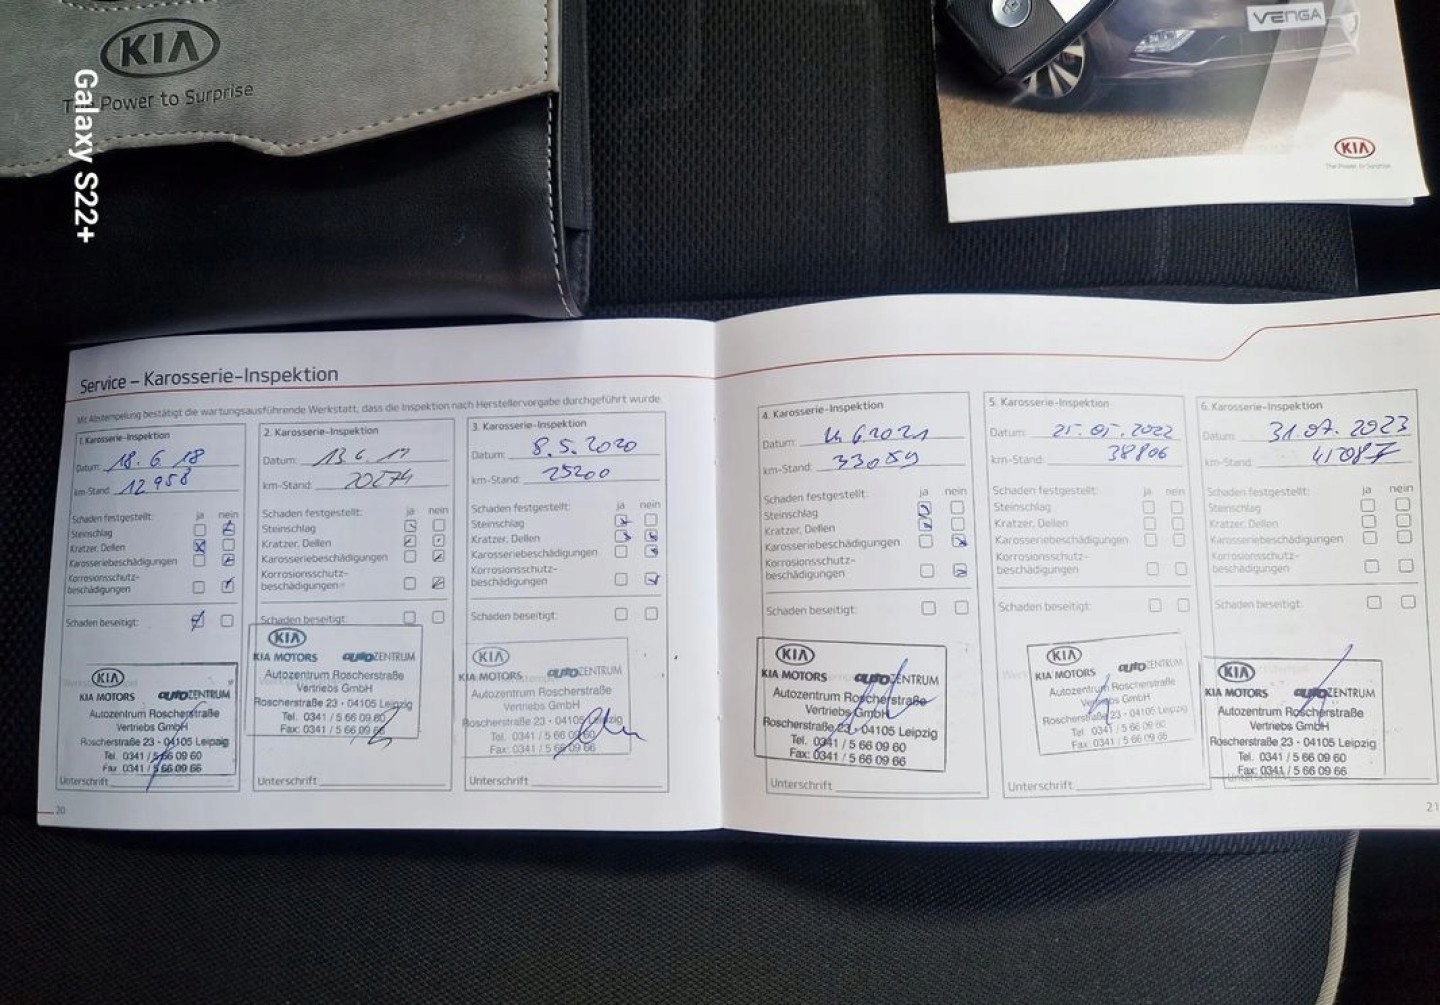 KIA
The Power to Surprise
Galaxy S22+
VENGA
KIA
The Power to Surprise
Service – Karosserie-Inspektion
Mit Abstempelung bestätigt die wartungsausführende Werkstatt, dass die Inspektion nach Herstellervorgabe durchgeführt wurde
1. Karosserie-Inspektion
Datum: 18.6.18
km-Stand: 12958
Schaden festgestellt: ja nein
Steinschlag
Kratzer, Dellen
Karosseriebeschädigungen
Korrosionsschutz-
beschädigungen
Schaden beseitigt:
KIA
KIA MOTORS autoZENTRUM
Autozentrum Roscherstraße
Vertriebs GmbH
Roscherstraße 23 - 04105 Leipzig
Tel. 0341 / 5 66 09 60
Fax 0341 / 5 66 09 66
Unterschrift
20
2. Karosserie-Inspektion
Datum:
km-Stand: 20274
Schaden festgestellt: ja nein
Steinschlag
Kratzer, Dellen
Karosseriebeschädigungen
Korrosionsschutz-
beschädigungen
Schaden beseitigt:
KIA
KIA MOTORS autoZENTRUM
Autozentrum Roscherstraße
Vertriebs GmbH
Roscherstraße 23 - 04105 Leipzig
Tel. 0341 / 5 66 09 60
Fax: 0341 / 5 66 09 66
Unterschrift
3. Karosserie-Inspektion
Datum: 8.5.2020
km-Stand: 25200
Schaden festgestellt: ja nein
Steinschlag
Kratzer, Dellen
Karosseriebeschädigungen
Korrosionsschutz-
beschädigungen
Schaden beseitigt:
KIA
KIA MOTORS autoZENTRUM
Autozentrum Roscherstraße
Vertriebs GmbH
Roscherstraße 23 - 04105 Leipzig
Tel. 0341 / 5 66 09 60
Fax: 0341 / 5 66 09 66
Unterschrift
4. Karosserie-Inspektion
Datum:
km-Stand: 33059
Schaden festgestellt: ja nein
Steinschlag
Kratzer, Dellen
Karosseriebeschädigungen
Korrosionsschutz-
beschädigungen
Schaden beseitigt:
KIA
KIA MOTORS autoZENTRUM
Autozentrum Roscherstraße
Vertriebs GmbH
Roscherstraße 23 - 04105 Leipzig
Tel. 0341 / 5 66 09 60
Fax: 0341 / 5 66 09 66
Unterschrift
5. Karosserie-Inspektion
Datum: 25.05.2022
km-Stand: 38806
Schaden festgestellt: ja nein
Steinschlag
Kratzer, Dellen
Karosseriebeschädigungen
Korrosionsschutz-
beschädigungen
Schaden beseitigt:
KIA
KIA MOTORS autoZENTRUM
Autozentrum Roscherstraße
Vertriebs GmbH
Roscherstraße 23 - 04105 Leipzig
Tel. 0341 / 5 66 09 60
Fax: 0341 / 5 66 09 66
Unterschrift
6. Karosserie-Inspektion
Datum: 31.07.2023
km-Stand: 41087
Schaden festgestellt: ja nein
Steinschlag
Kratzer, Dellen
Karosseriebeschädigungen
Korrosionsschutz-
beschädigungen
Schaden beseitigt:
KIA
KIA MOTORS autoZENTRUM
Autozentrum Roscherstraße
Vertriebs GmbH
Roscherstraße 23 - 04105 Leipzig
Tel. 0341 / 5 66 09 60
Fax: 0341 / 5 66 09 66
Unterschrift
21